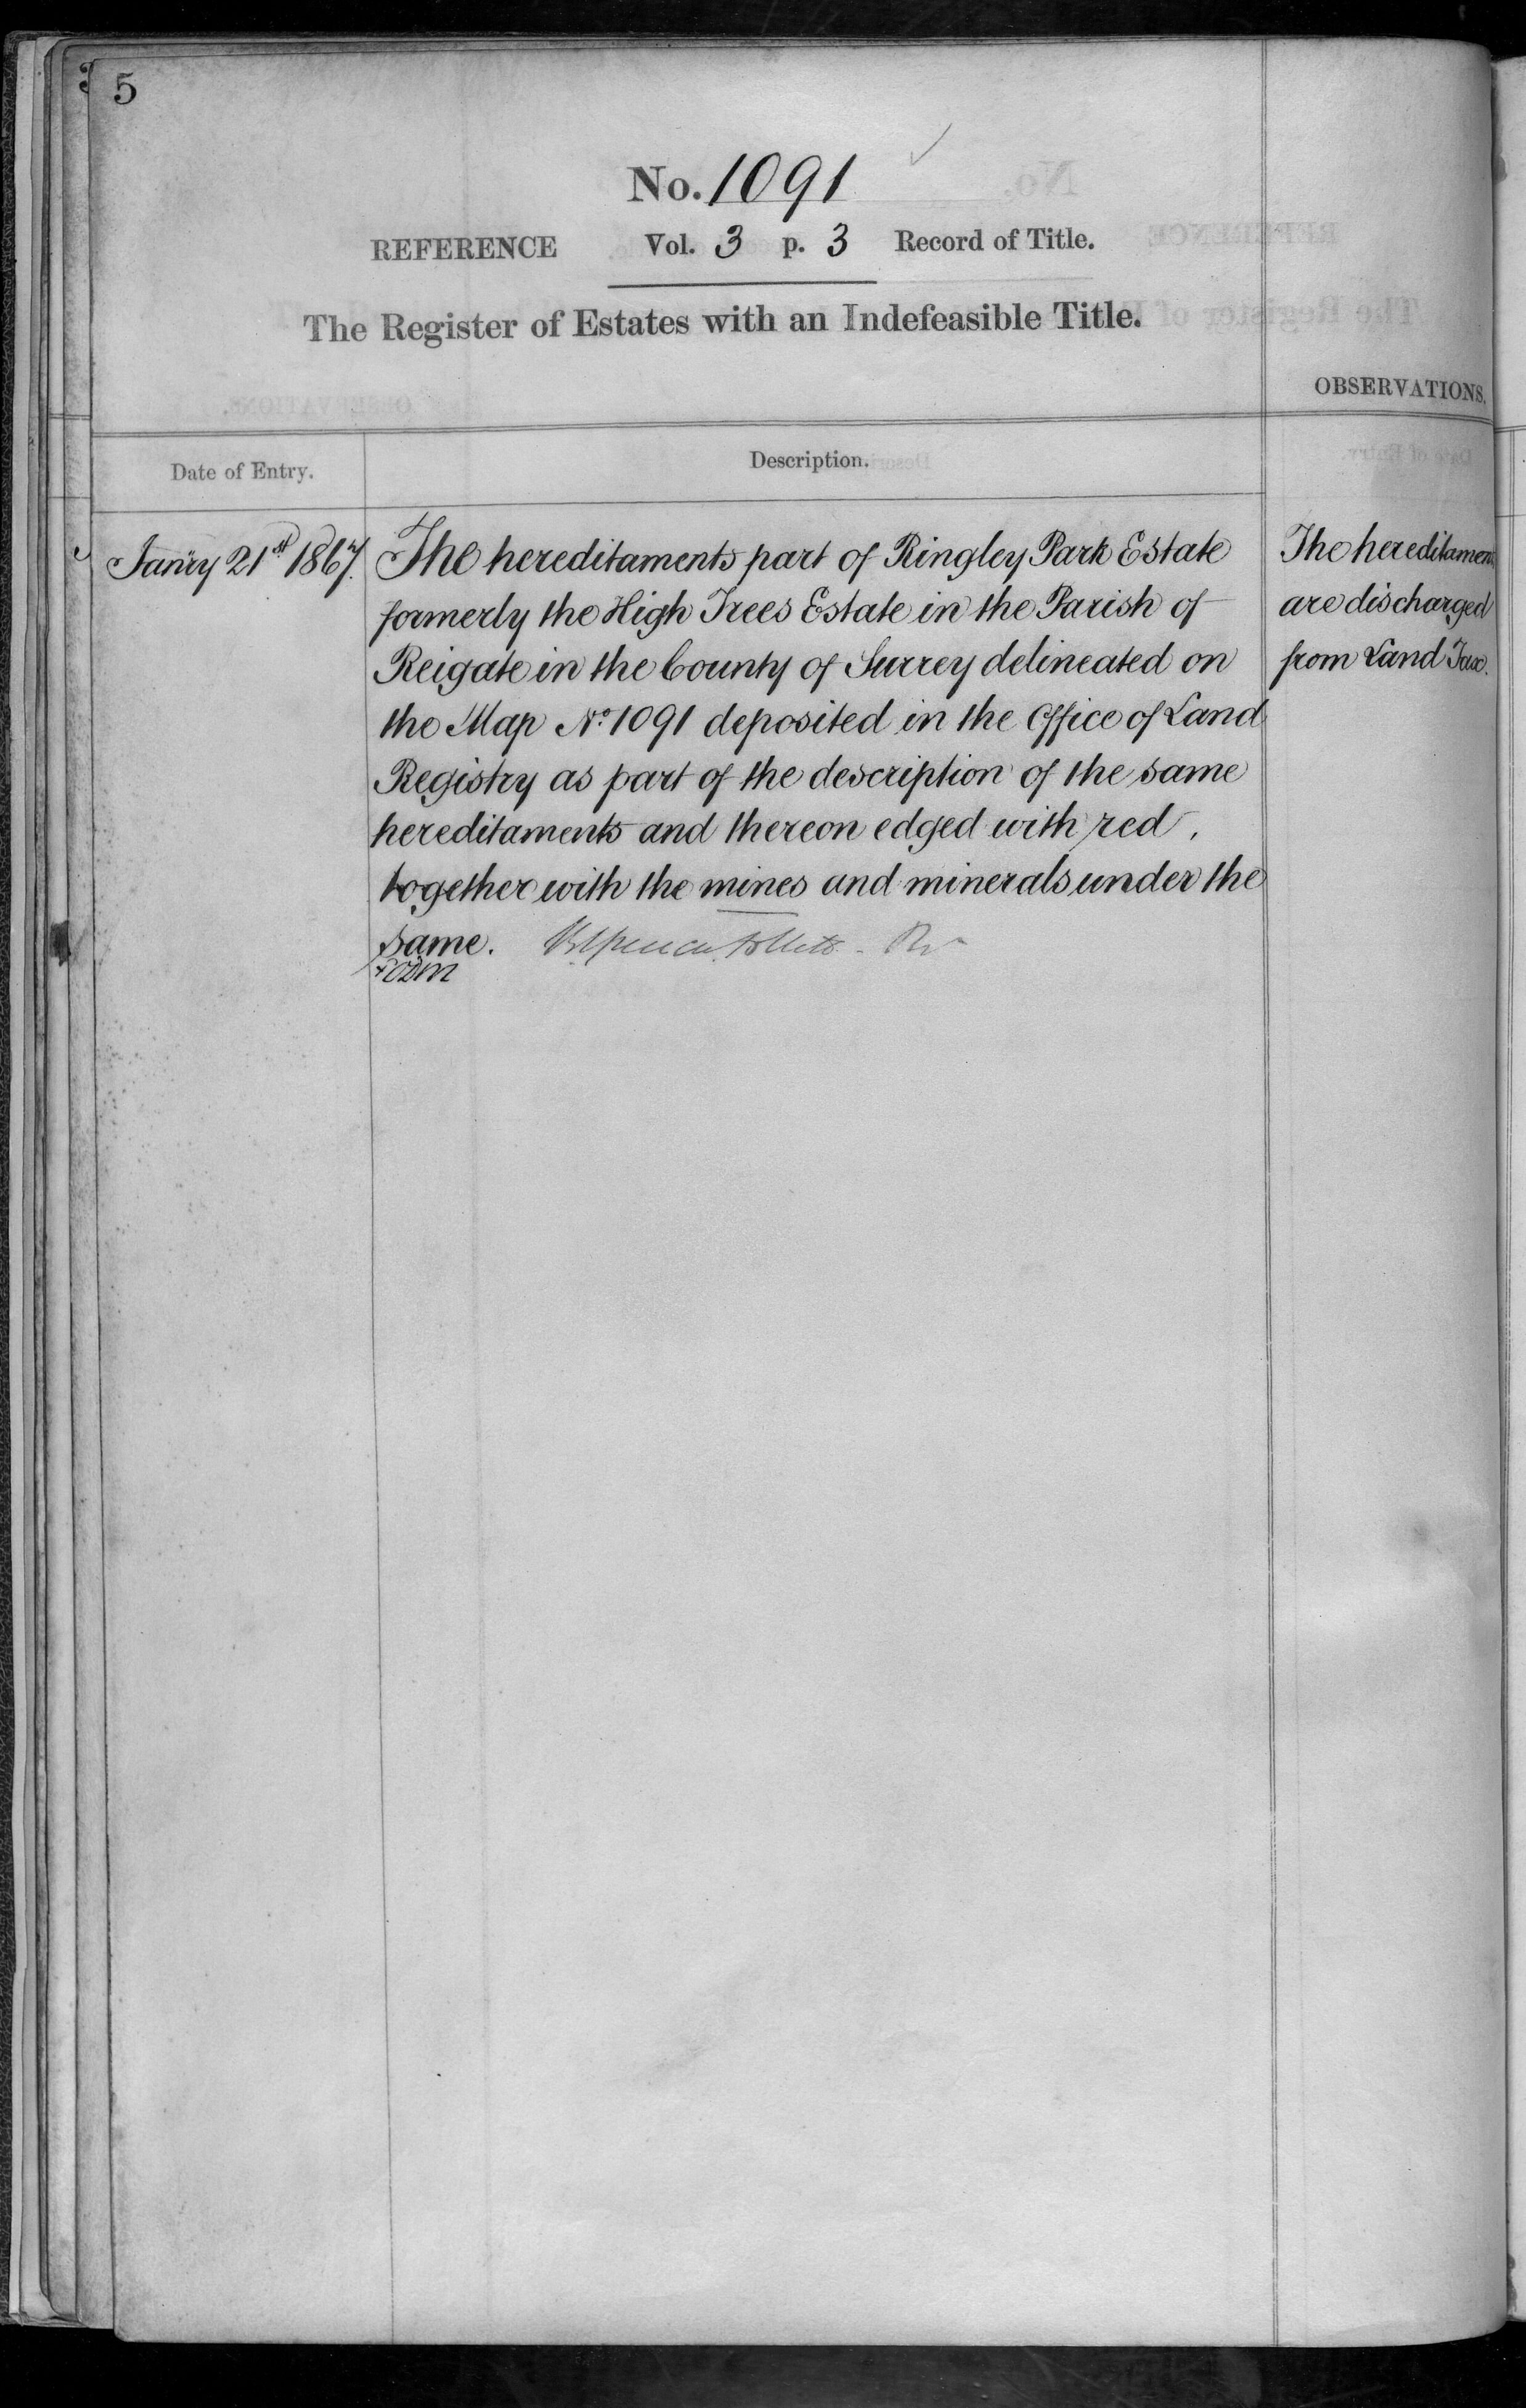 5
No. 1091
REFERENCE Vol. 3 p. 3 Record of Title.
The Register of Estates with an Indefeasible Title.
OBSERVATIONS.
Date of Entry.
Description.
Janry 21st 1867.
The hereditaments part of Ringley Park Estate
formerly the High Trees Estate in the Parish of
Reigate in the County of Surrey delineated on
the Map No. 1091 deposited in the Office of Land
Registry as part of the description of the same
hereditaments and thereon edged with red,
together with the mines and minerals under the
same.
The hereditamen
are discharged
from Land Tax.